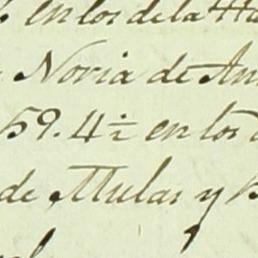 en los de la Ha
Noria de An
59. 4½ en los
de Mulas y